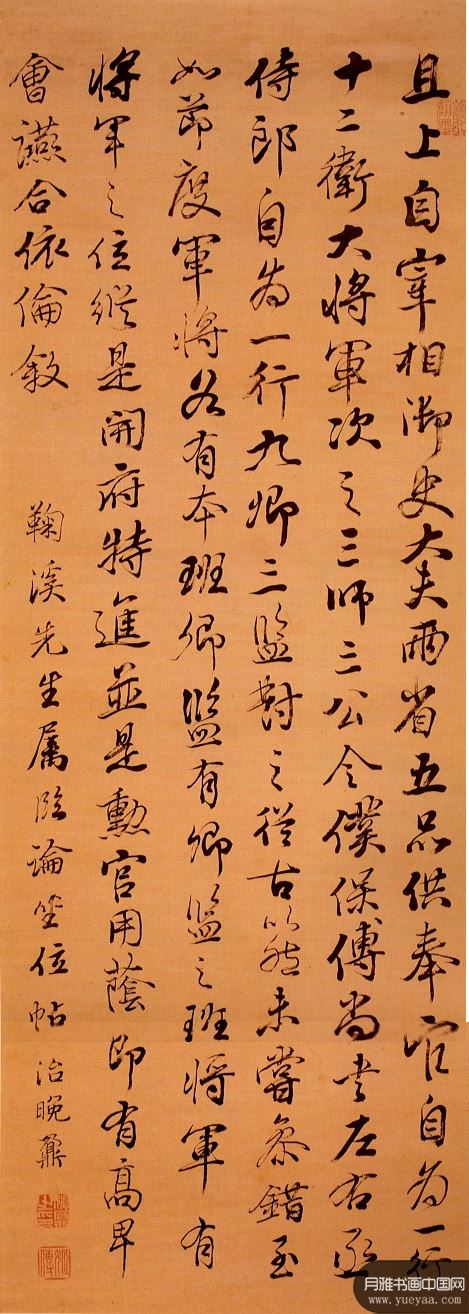 且上自宰相御史大夫兩省五品供奉官自為一行
十二衛大將軍次之三師三公令僕保傅尚書左右丞
侍郎自為一行九卿三監對之從古以然未嘗參錯至
如節度軍將各有本班卿監有卿監之班將軍有
將軍之位縱是開府特進並是勳官用蔭即有高卑
會讌合依倫敘
鞠溪先生属臨論坐位帖 治晚鼐
月雅书画中国网
www.yueyaa.com